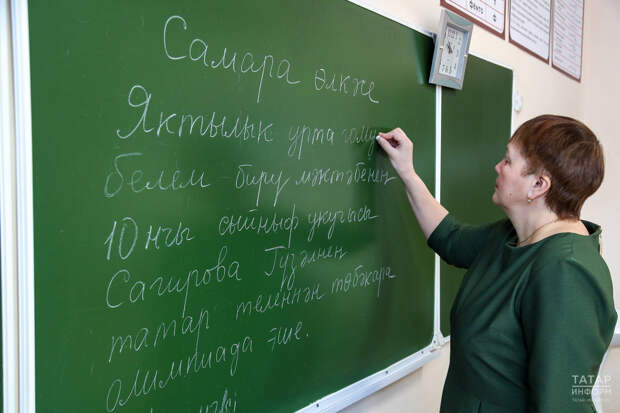 Самара өлкәсе
Яктылык урта гому
белем бирү мәктәбенең
10нчы сыйныф укучысы
Сагирова Гүзәлнең
татар теленнән төбәкара
олимпиада эше.
ТАТАР
ИНФОРМ